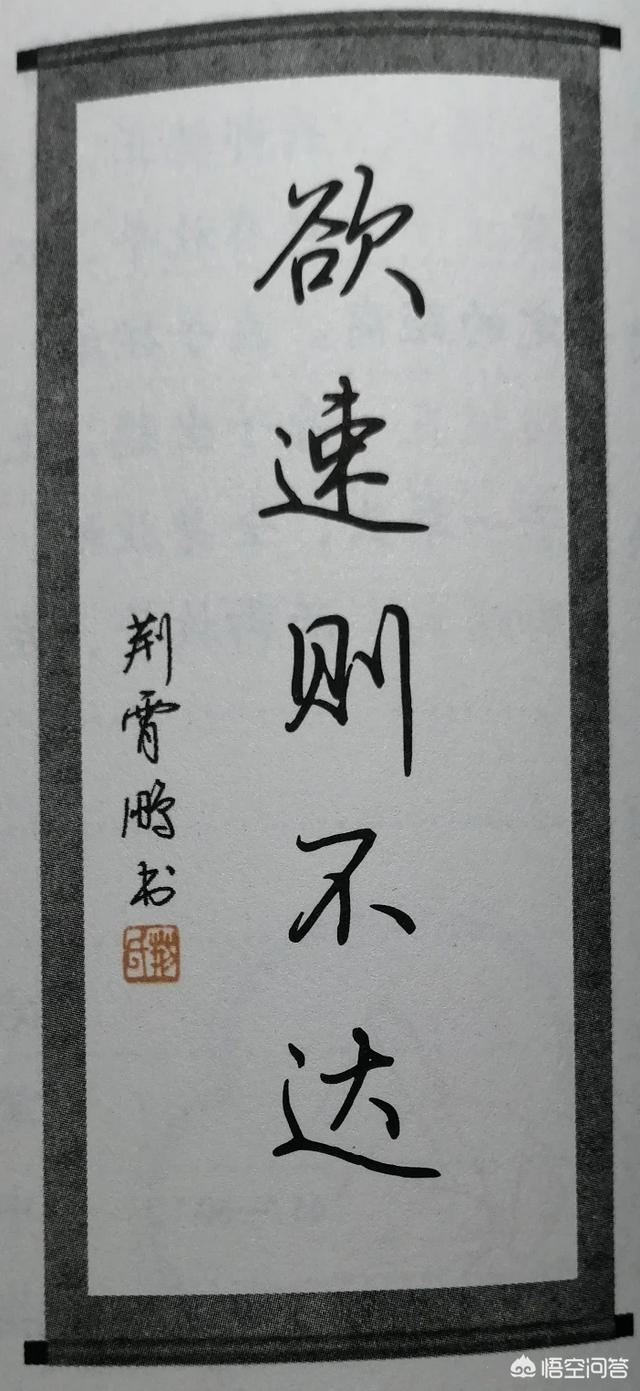 欲速则不达
荆霄鹏书
悟空问答